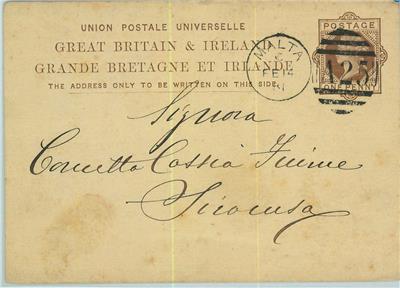 UNION POSTALE UNIVERSELLE
GREAT BRITAIN & IRELAN
GRANDE BRETAGNE ET IRLANDE
THE ADDRESS ONLY TO BE WRITTEN ON THIS SIDE
POSTAGE
ONE PENNY
MALTA
FE 14
A25
Signora
Concetta Cassia
Siracusa